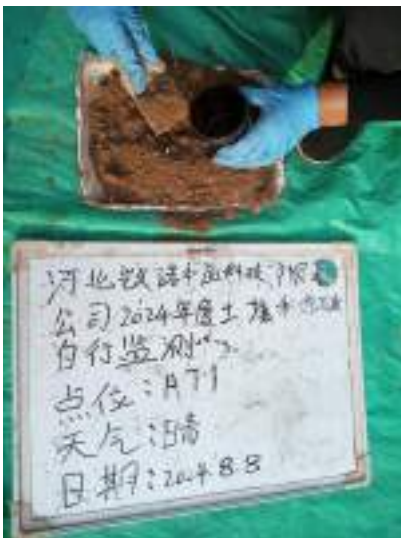 河北
公司2024年度土壤和地下水
自行监测
点位:AT1
天气:晴
日期:2024.8.8